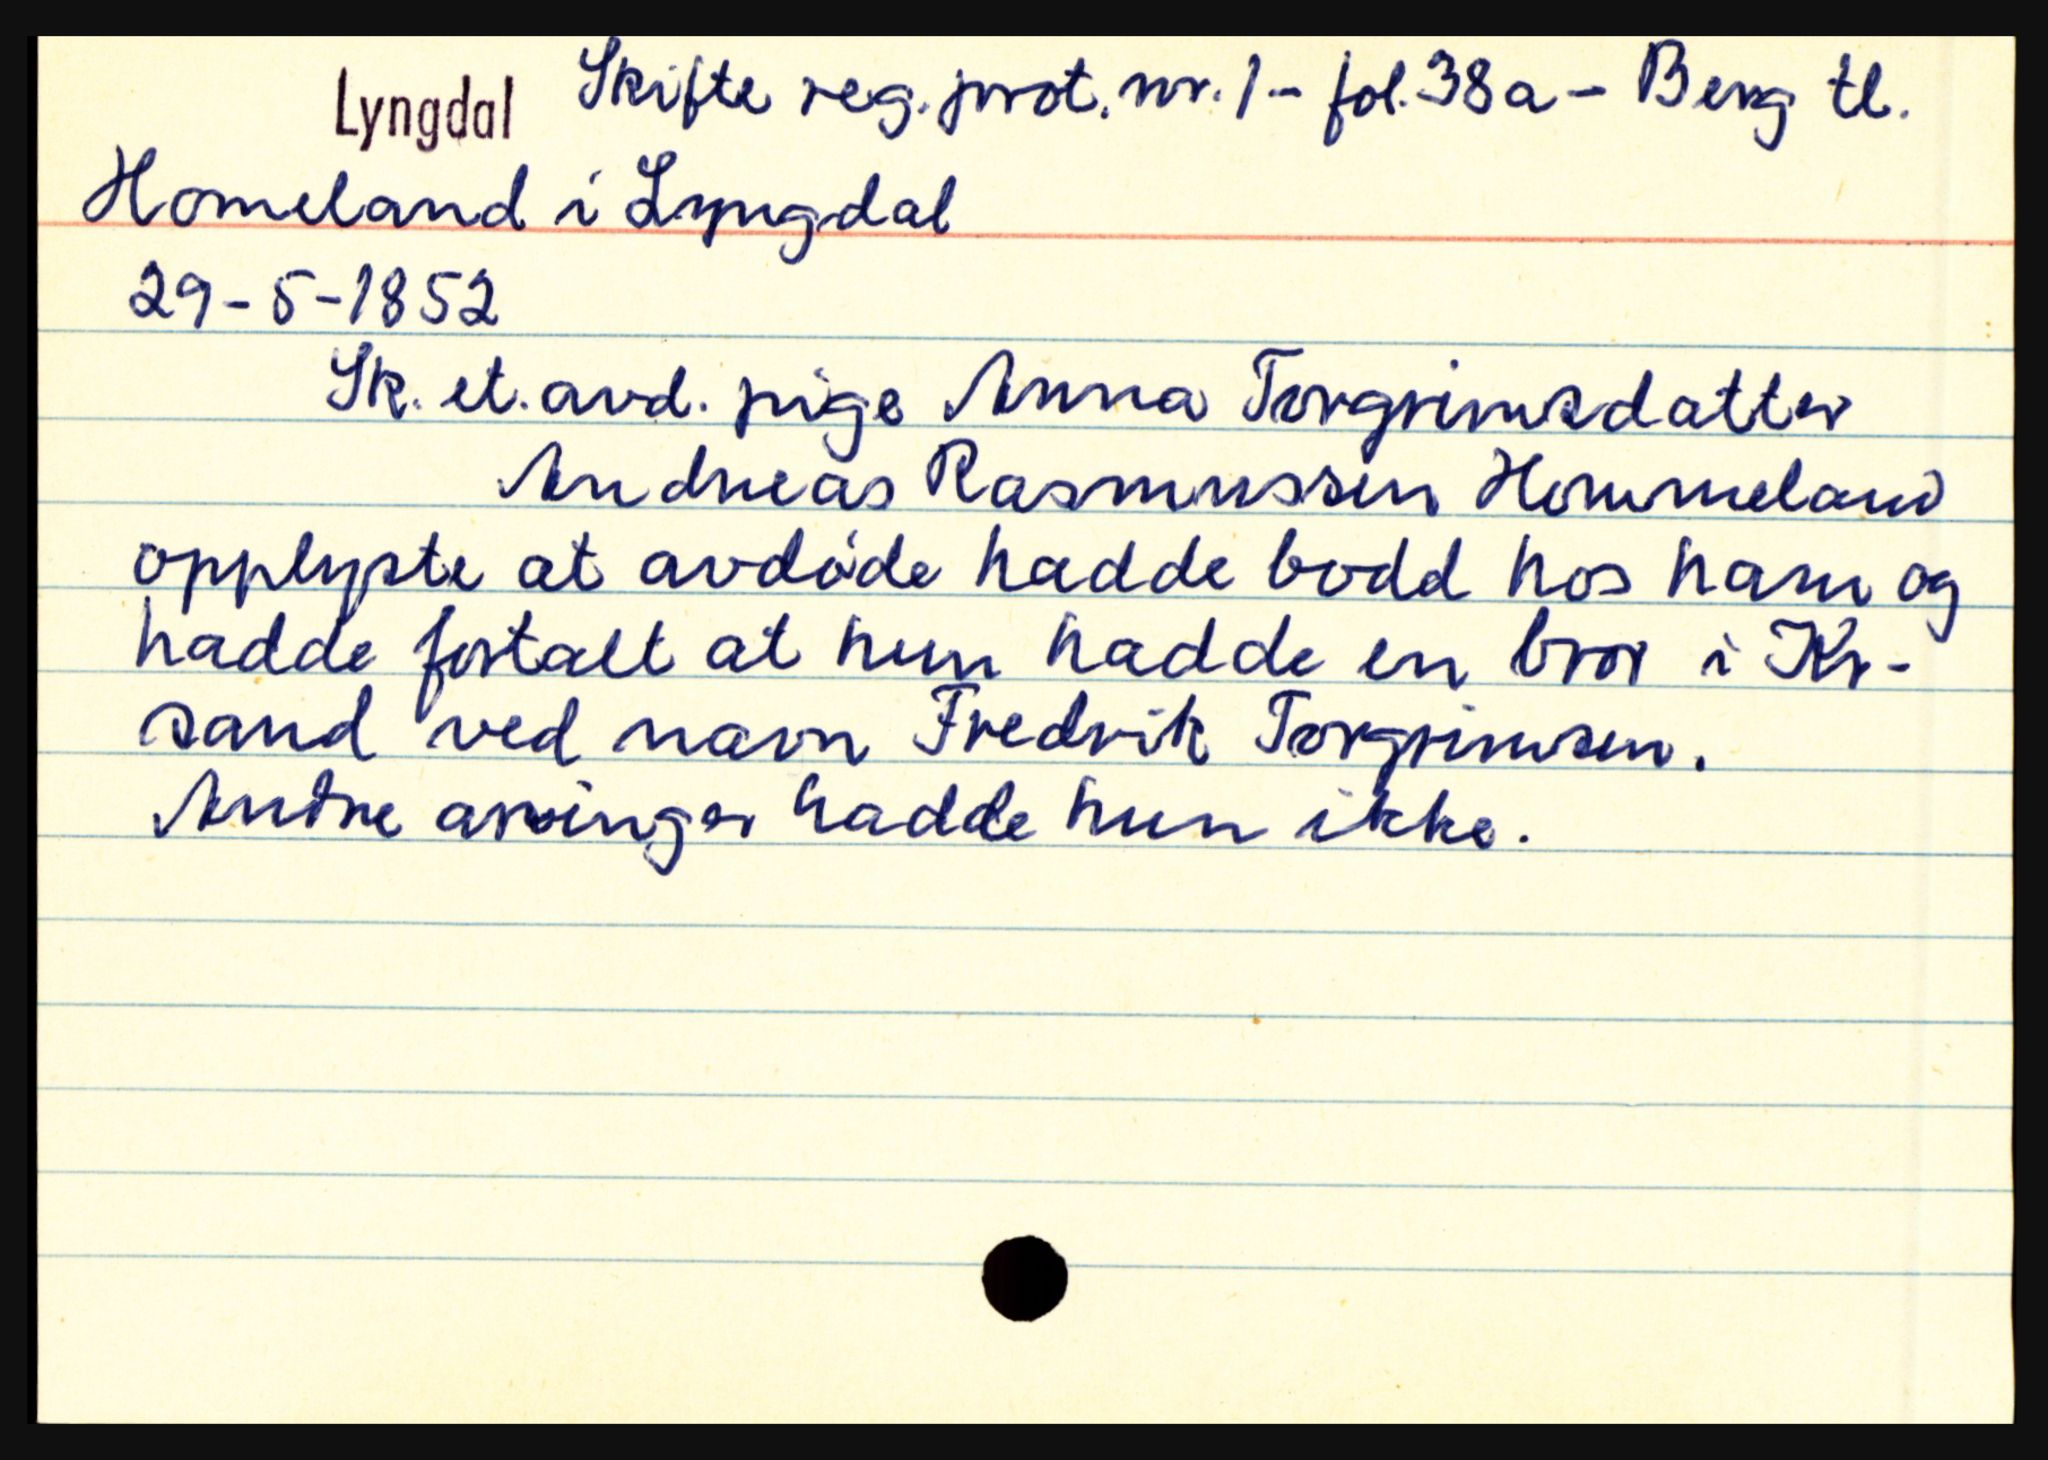 Lyngdal Skifte reg. prot. nr. 1 - fol. 38a - Berg tl.
Homeland i Lyngdal
29-5-1852
Sk. et. avd. pige Anna Torgrimsdatter
Andreas Rasmussen Hommeland
opplyste at avdøde hadde bodd hos ham og
hadde fortalt at hun hadde en bror i Kr-
sand ved navn Fredrik Torgrimsen.
Andre arvinger hadde hun ikke.